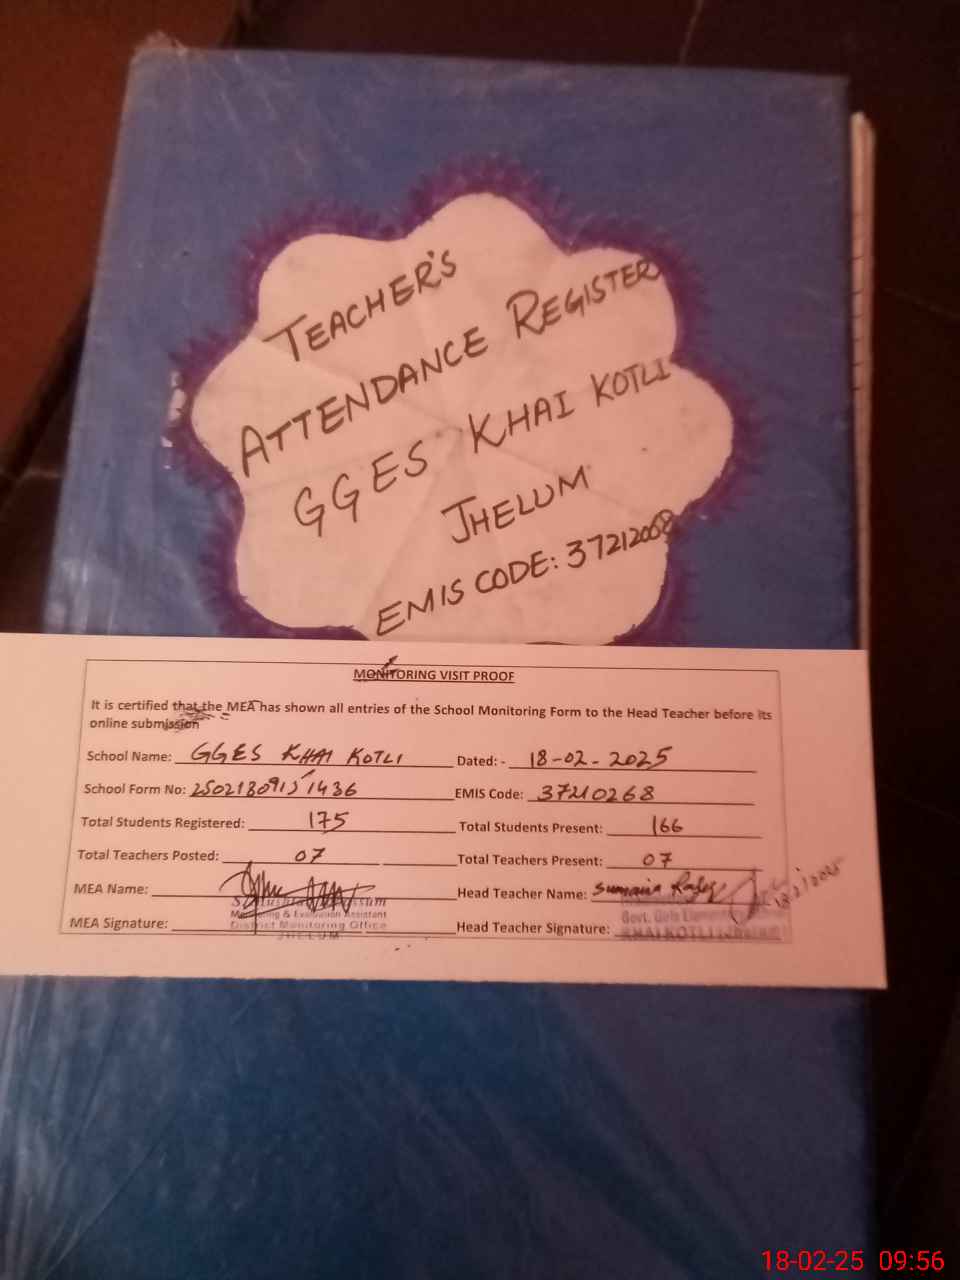 TEACHER'S
ATTENDANCE REGISTER
GGES KHAI KOTLI
JHELUM
EMIS CODE: 37212068
MONITORING VISIT PROOF
It is certified that the MEA has shown all entries of the School Monitoring Form to the Head Teacher before its
online submission
School Name: GGES KHAI KOTLI Dated: - 18-02-2025
School Form No: EMIS Code:
Total Students Registered: 175 Total Students Present: 166
Total Teachers Posted: 07 Total Teachers Present: 07
MEA Name: Head Teacher Name: Sumaira
Monitoring & Evaluation Assistant
MEA Signature: District Monitoring Office Head Teacher Signature:
JHELUM
Govt. Girls
KHAI KOTLI
18-02-25 09:56